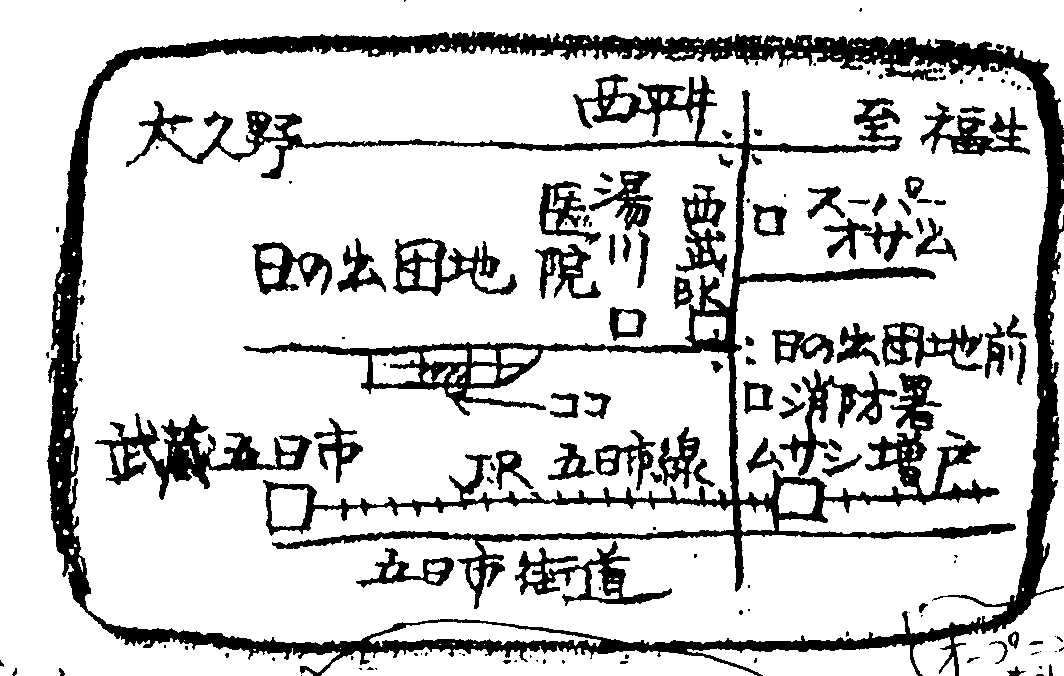 大久野
西平井
至 福生
スーパー
オザム
湯川
医院
西武
BK
日の出団地
日の出団地前
ココ
消防署
武蔵五日市
JR 五日市線
ムサシ増戸
五日市街道